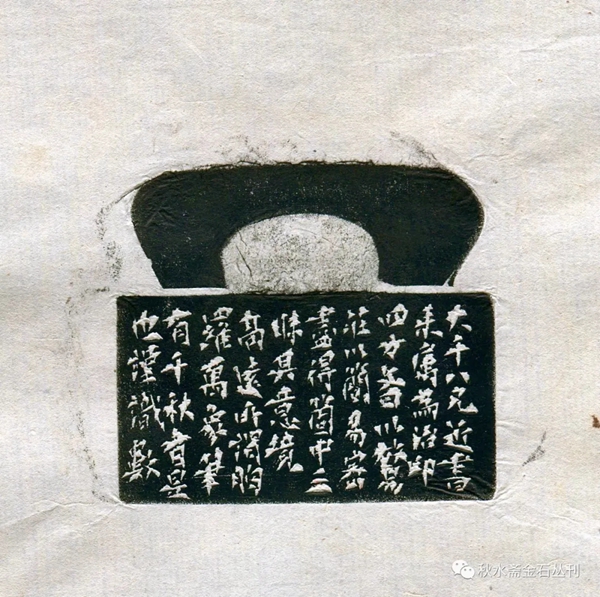 大千八兄近書
来屬為治印
四方以
莊以簡易
盡得箇中三
昧其意境
高遠所謂胸
羅萬象筆
有千秋者是
也謹識數
秋水斋金石丛刊